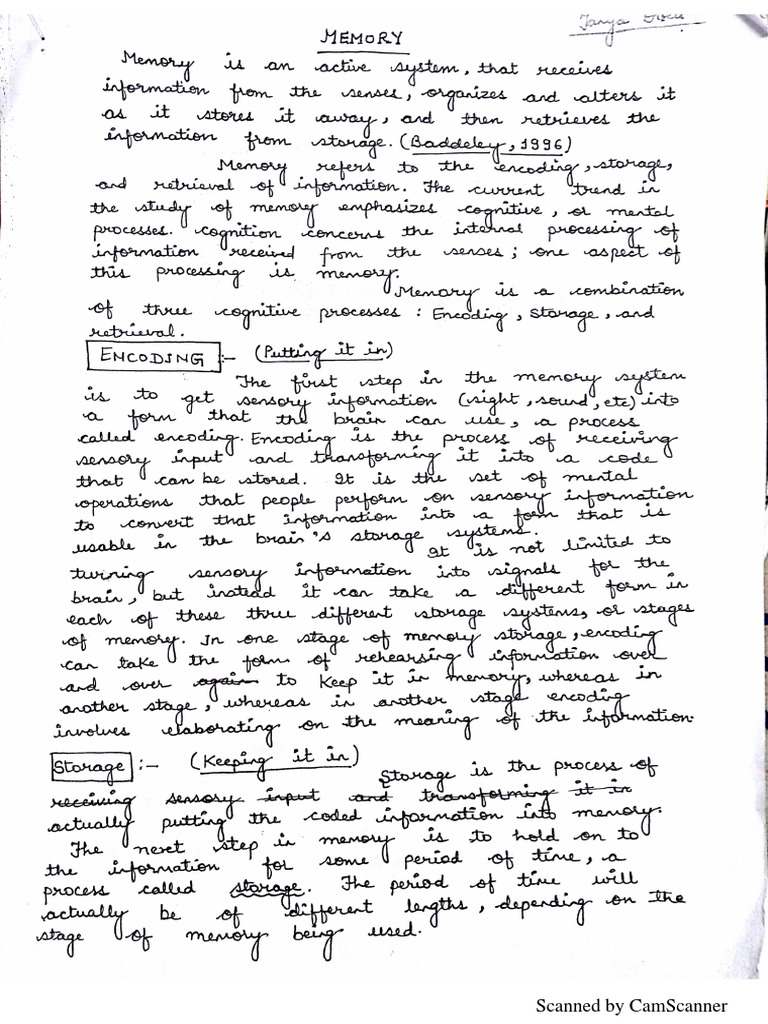 Tanya
MEMORY
Memory is an active system, that receives
information from the senses, organizes and alters it
as it stores it away, and then retrieves the
information from storage. (Baddeley, 1996)
Memory refers to the encoding, storage,
and retrieval of information. The current trend in
the study of memory emphasizes cognitive, or mental
processes. Cognition concerns the internal processing of
information received from the senses; one aspect of
this processing is memory.
Memory is a combination
of three cognitive processes : Encoding, storage, and
retrieval.
ENCODING :- (Putting it in)
The first step in the memory system
is to get sensory information (sight, sound, etc) into
a form that the brain can use, a process
called encoding. Encoding is the process of receiving
sensory input and transforming it into a code
that can be stored. It is the set of mental
operations that people perform on sensory information
to convert that information into a form that is
usable in the brain's storage systems.
It is not limited to
turning sensory information into signals for the
brain, but instead it can take a different form in
each of these three different storage systems, or stages
of memory. In one stage of memory storage, encoding
can take the form of rehearsing information over
and over again to keep it in memory, whereas in
another stage, whereas in another stage encoding
involves elaborating on the meaning of the information.
Storage :- (Keeping it in)
Storage is the process of
receiving sensory input and transforming it in
actually putting the coded information into memory.
The next step in memory is to hold on to
the information for some period of time, a
process called storage. The period of time will
actually be of different lengths, depending on the
stage of memory being used.
Scanned by CamScanner